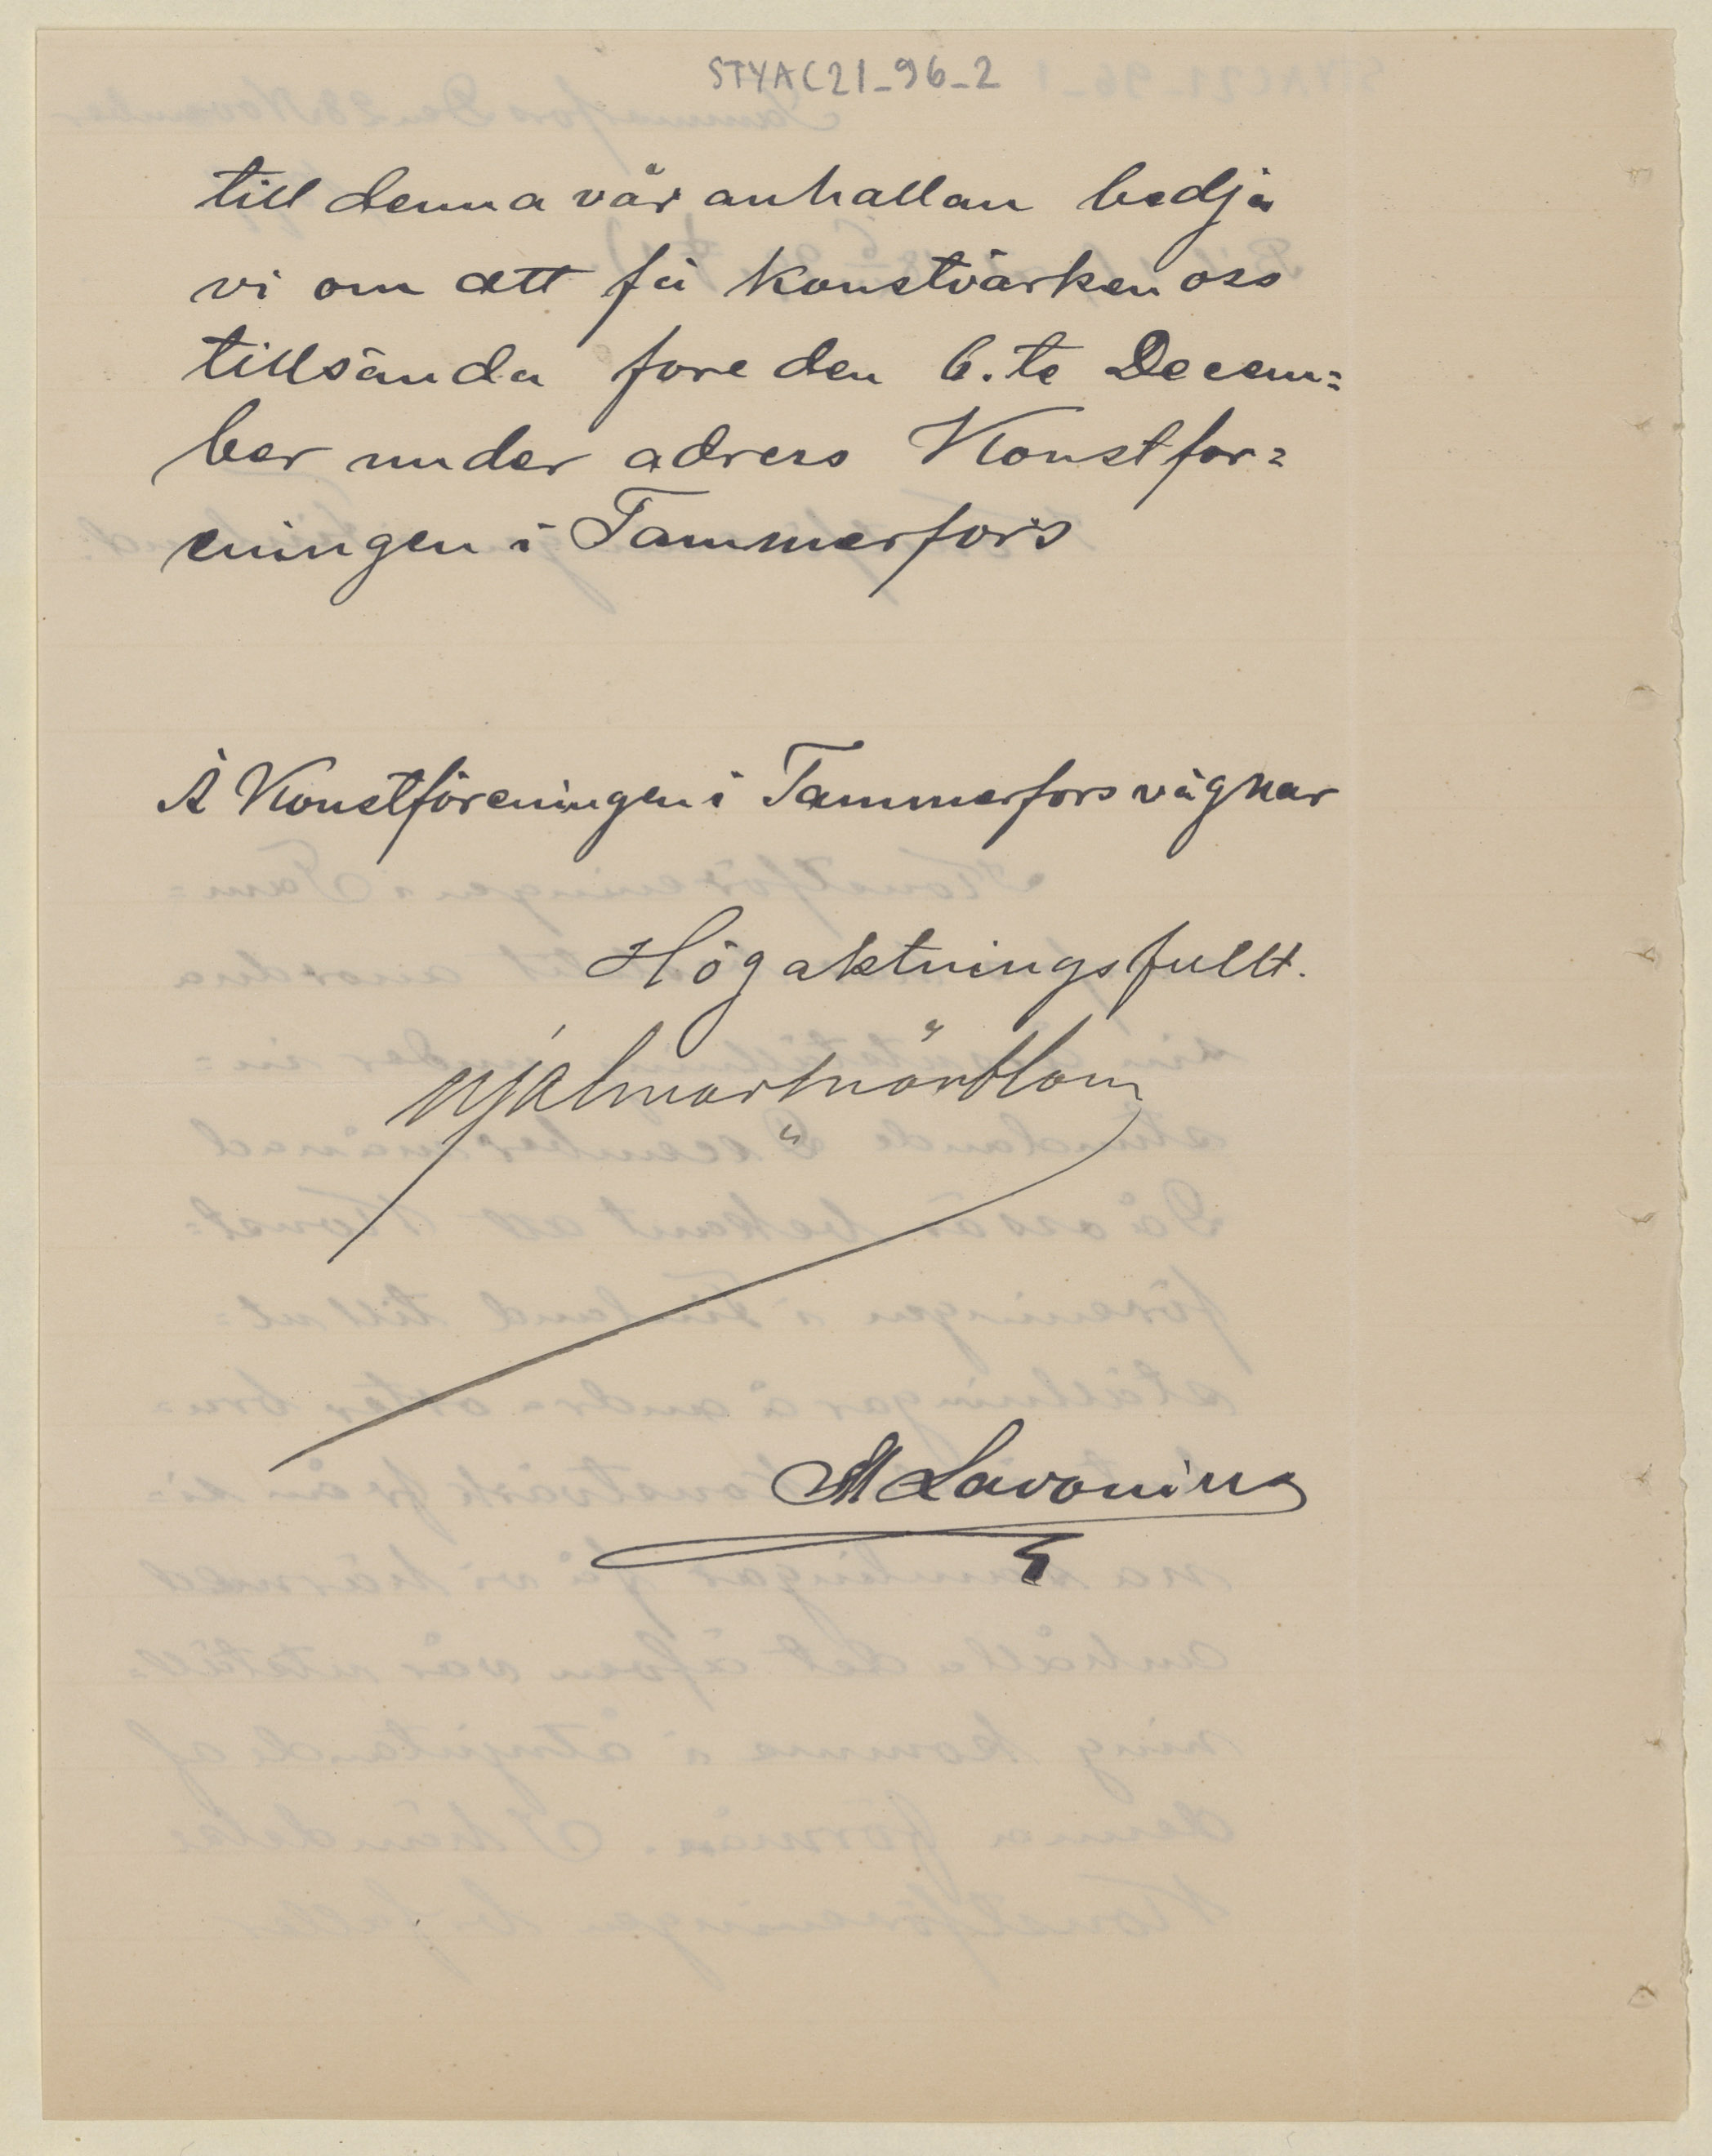 STYAC21_96_2
till denna vår anhallan bedja
vi om att få konstvärken oss
tillsända fore den 6.te Decem=
ber under adress Konstfor=
eningen i Tammerfors
Å Konstföreningen i Tammerfors vägnar
Högaktningsfullt.
Hjalmar Nordblom
M Lavonius